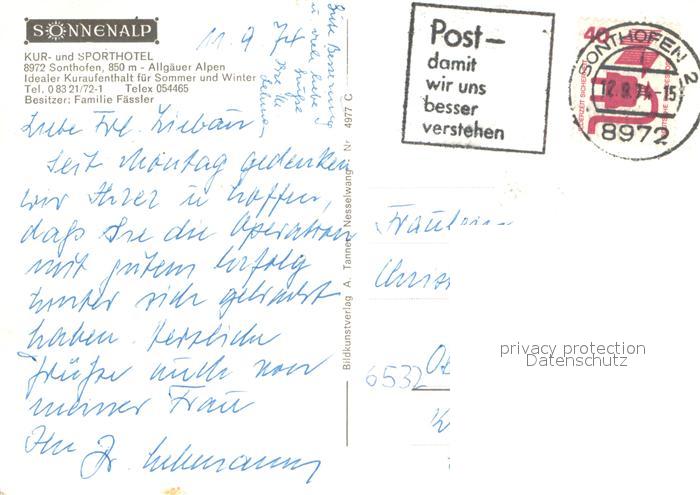 SONNENALP
KUR- und SPORTHOTEL
8972 Sonthofen, 850 m - Allgäuer Alpen
Idealer Kuraufenthalt für Sommer und Winter
Tel. 0 83 21/72-1 Telex 054465
Besitzer: Familie Fässler
11. 9. 74
Gute Besserung
u. viele liebe
Grüße
Liebe Frl.
Seit Montag gedenken
wir Ihrer u. hoffen,
daß Sie die Operation
mit gutem Erfolg
hinter sich gebracht
haben. Herzliche
Grüße auch von
meiner Frau
Ihr
Bildkunstverlag A. Tanner, Nesselwang 4977 C
Post–
damit
wir uns
besser
verstehen
40
SONTHOFEN 2
12.9.74-15
8972
JEDERZEIT SICHERHEIT
Fräulein
6532
privacy protection
Datenschutz